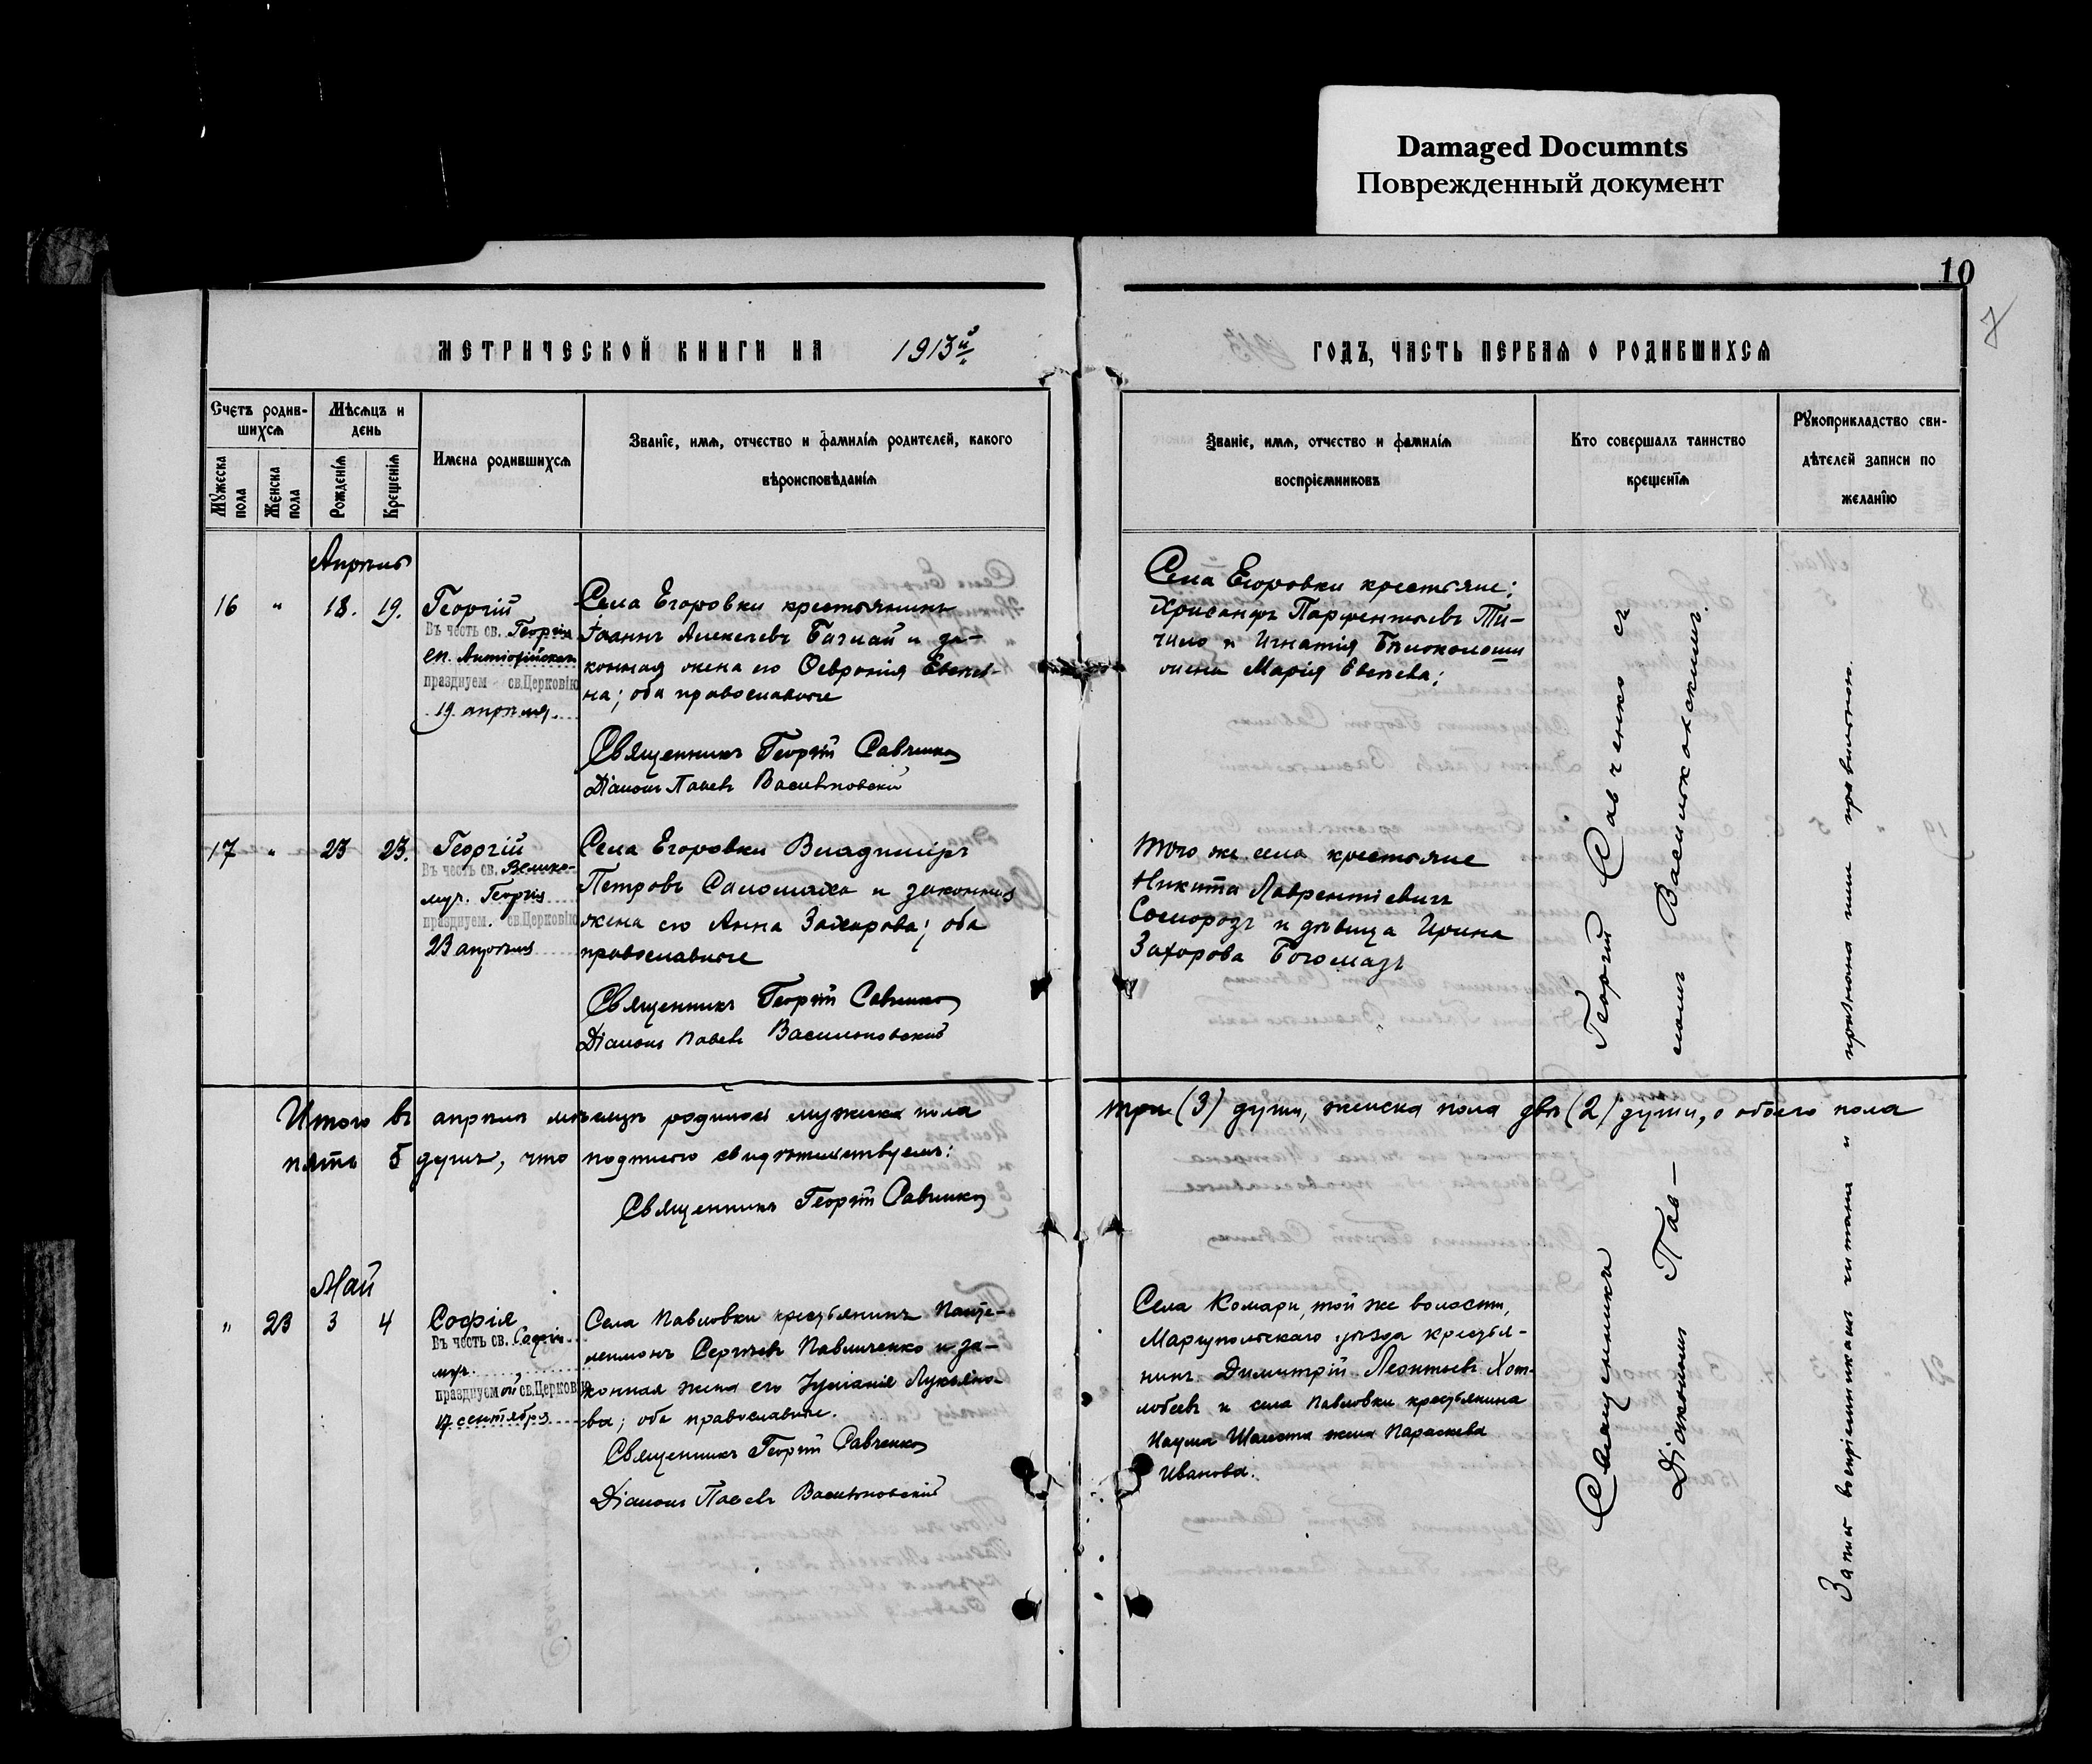 Damaged Documnts
Поврежденный документ
10
7
МЕТРИЧЕСКОЙ КНИГИ НА 1913й
ГОДЪ, ЧАСТЬ ПЕРВАЯ О РОДИВШИХСЯ
Счетъ родив-
шихся
Мѣсяцъ и
день
Мужеска
пола
Женска
пола
Рожденія
Крещенія
Имена родившихся
Званіе, имя, отчество и фамилія родителей, какого
вѣроисповѣданія
Званіе, имя, отчество и фамилія
воспріемниковъ
Кто совершалъ таинство
крещенія
Рукоприкладство сви-
дѣтелей записи по
желанію
Апрѣль
16 " 18. 19.
Георгій
Въ честь св. Георгія
еп. Антіохійскаго
празднуем св.Церковію
19 апрѣля
Села Егоровки крестьянинъ
Іоаннъ Алексѣевъ и за-
конная жена его Ѳевронія
на; оба православные
Священникъ Георгій Савченко
Діаконъ Павелъ Васильковскій
Села Егоровки крестьяне:
Хрисанфъ Парфентьевъ Ти-
чило и Игнатія
жена Марія
17 " 23 23.
Георгій
Въ честь св. Велико-
муч. Георгія
празднуем. св.Церковію
23 апрѣля
Села Егоровки Владиміръ
Петровъ Саломаха и законная
жена его Анна Захарова; оба
православные
Священникъ Георгій Савченко
Діаконъ Павелъ Васильковскій
Того же села крестьяне
Никита Лаврентіевичъ
и дѣвица Ирина
Захорова Богомазъ
Итого въ апрѣлѣ мѣсяцѣ родилось мужска пола
три (3) души, женска пола двѣ (2) души, а обоего пола
пять 5 душъ, что подписью свидѣтельствуемъ:
Священникъ Георгій Савченко
Май
" 23 3 4
Софія
Въ честь св. Софіи
муч.
празднуемой св.Церковію
17 сентября
Села Павловки крестьянинъ Панте-
леимонъ Сергѣевъ Павличенко и за-
конная жена его Іуліанія Лукьяно-
ва; оба православные.
Священникъ Георгій Савченко
Діаконъ Павелъ Васильковскій
Села Комари, той же волости,
Маріупольскаго уѣзда крестья-
нинъ Димитрій Леонтьевъ Хот-
лобеевъ и села Павловки крестьянина
Наума Шаласта жена Параскева
Иванова.
Священникъ Георгій Савченко съ
Діакономъ Пав-
ломъ Васильковскимъ.
Запись воспріемникамъ читана и признана ими правильною.